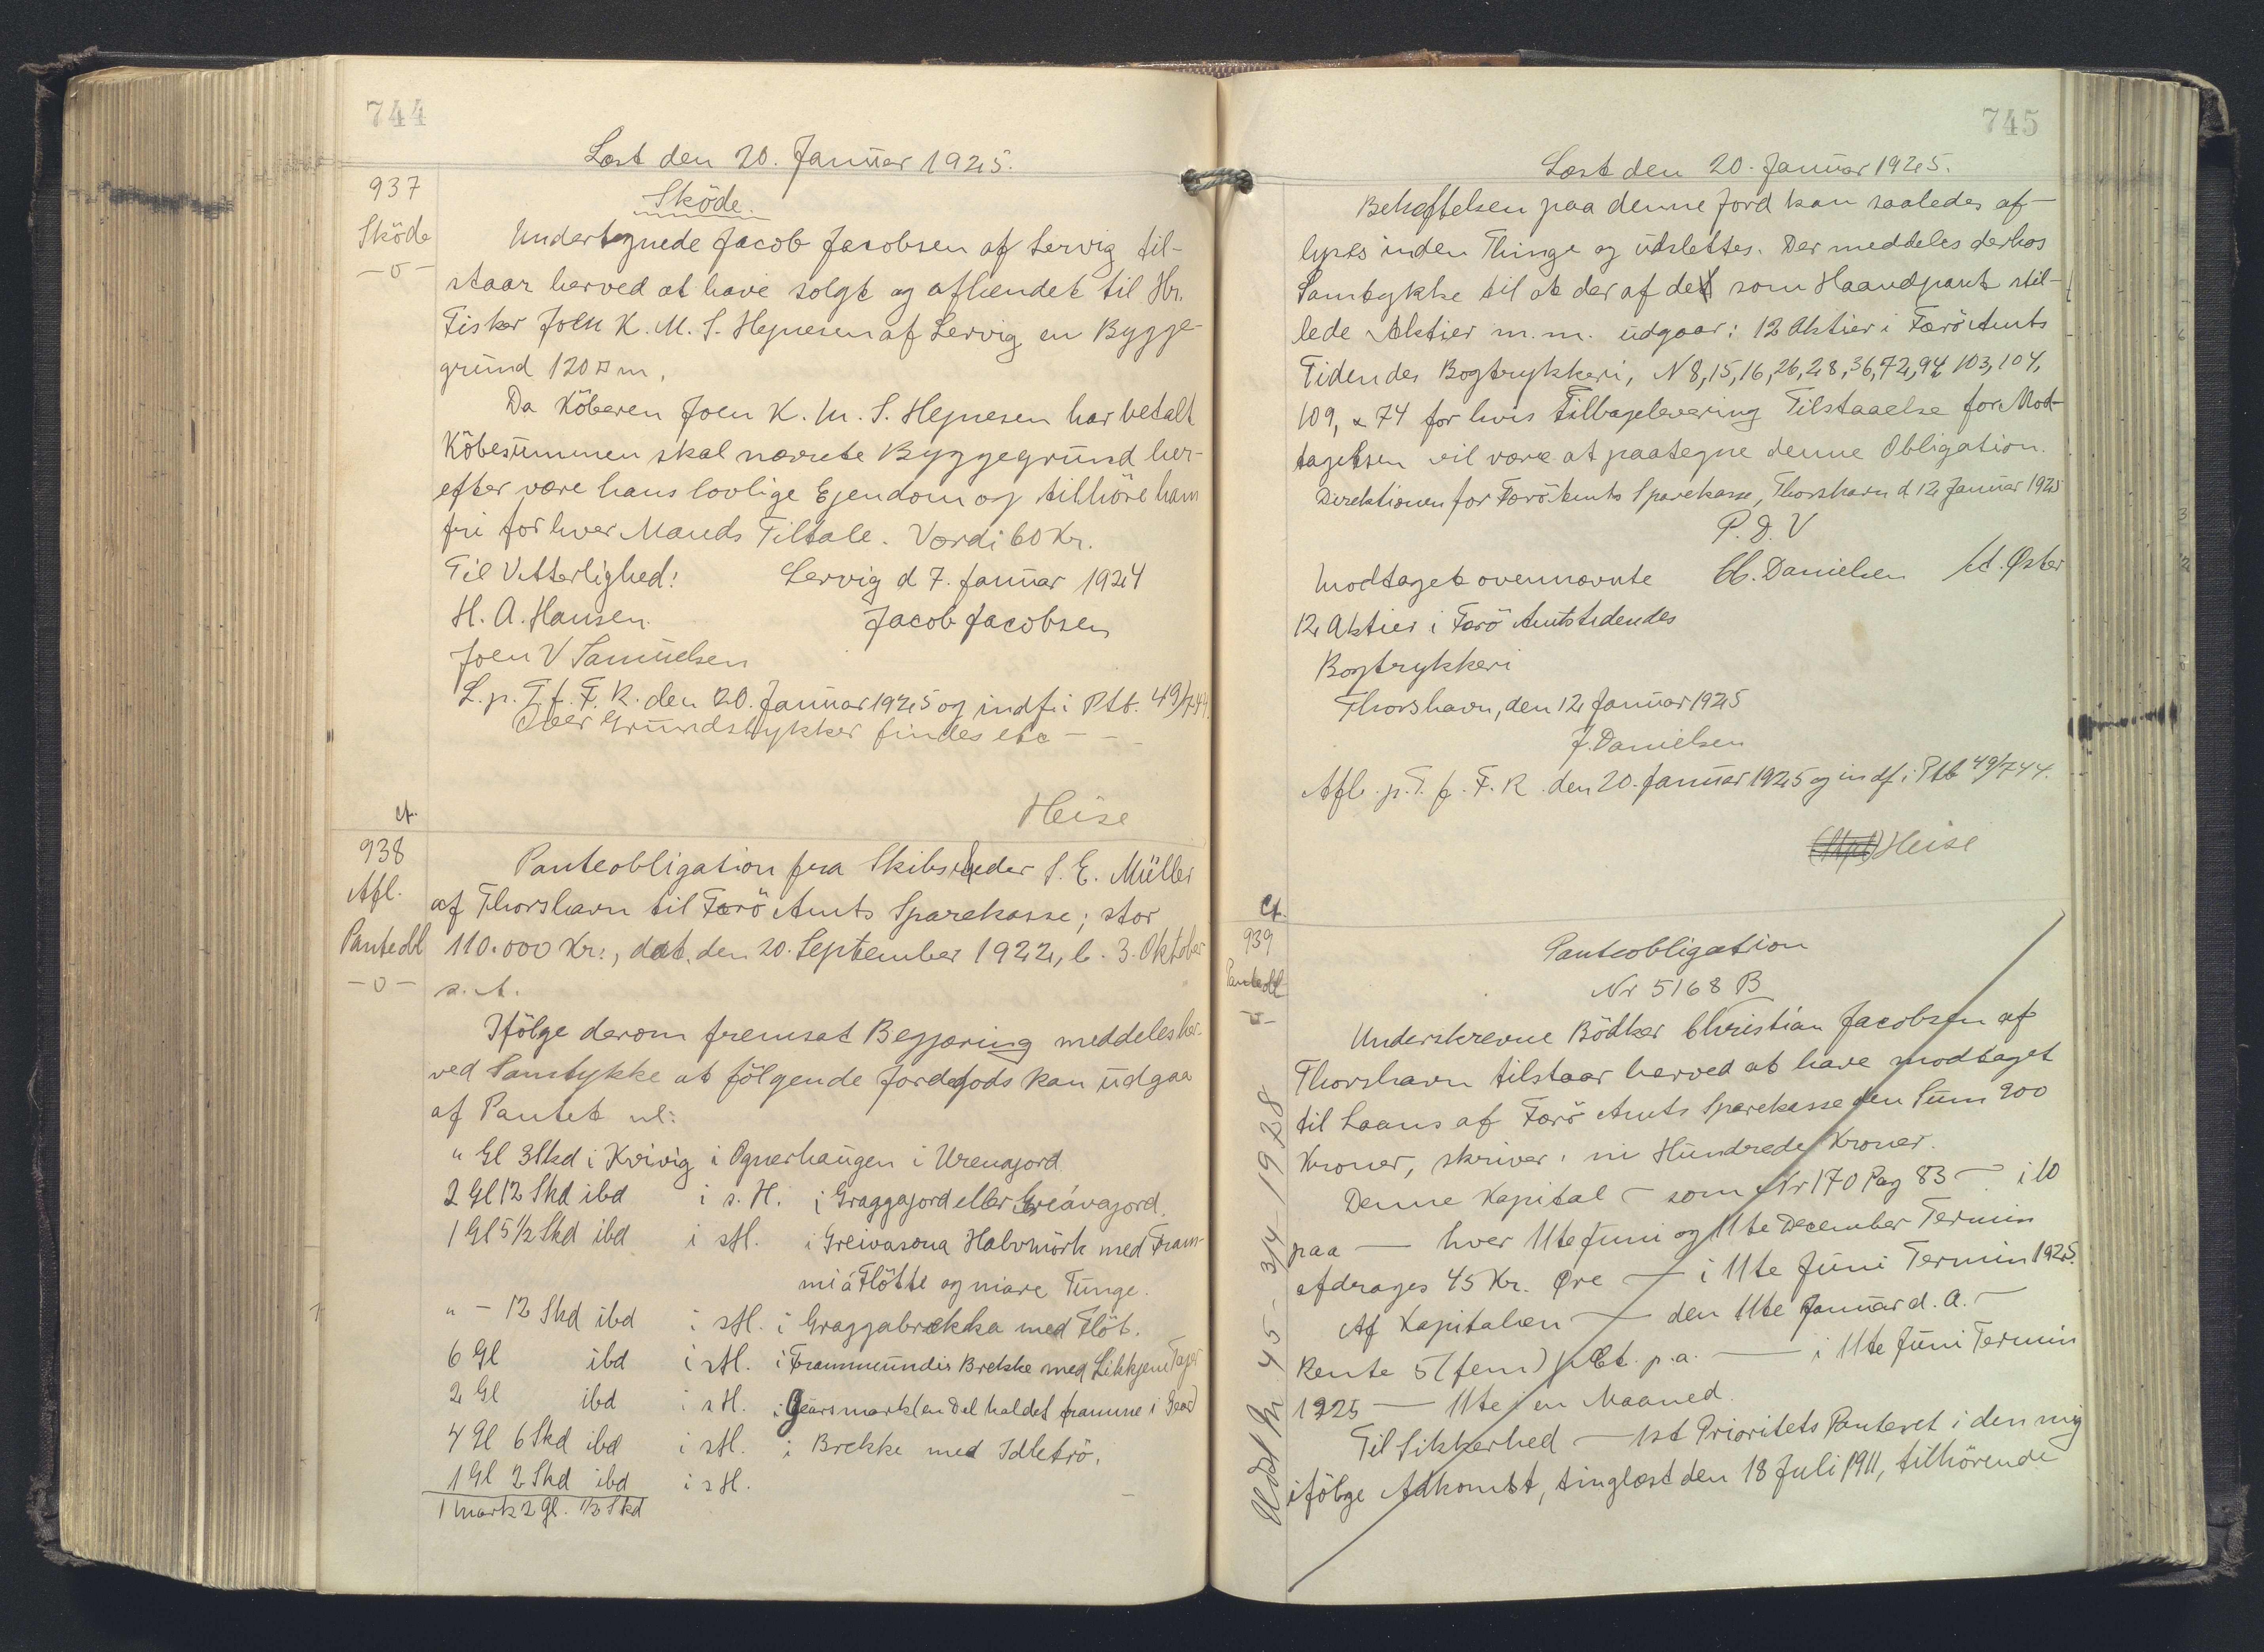 744
Læst den 20. Januar 1925.
937
Sköde
-o-
Sköde.
Undertegnede Jacob Jacobsen af Lervig til-
staar herved at have solgt og afhendet til Hr.
Fisker Joen K. M. S. Hejnesen af Lervig en Bygge-
grund 120 □ m.
Da Köberen Joen K. M. S. Hejnesen har betalt
Köbesummen skal nævnte Byggegrund her-
efter være hans lovlige Ejendom og tilhöre ham
fri for hver Mands Tiltale. Værdi 60 Kr.
Til Vitterlighed! Lervig d 7. Januar 1924
H. A. Hansen. Jacob Jacobsen
Joen V Samuelsen
L. p. T. f. F. R. den 20. Januar 1925 og indf. i Ptb. 49/744.
Over Grundstykker findes etc - -
Heise
ct.
938
Afl.
Panteobl
-o-
Panteobligation fra Skibsreder S. E. Müller
af Thorshavn til Færö Amts Sparekasse; stor
110.000 Kr:, dat. den 20. September 1922, l. 3. Oktober
s. A.
Ifölge derom fremsat Begjæring meddeles her-
ved Samtykke at fölgende Jordegods kan udgaa
af Pantet nl:
" Gl 3 Skd i Kvivig i Ognerhaugen i Urenajord
2 Gl 12 Skd ibd i s. H. i Graggajord eller Greávajord.
1 Gl 5 1/2 Skd ibd i sH. i Greivasona Halvmörk med Fram-
mi á Flötte og niare Tunge.
" - 12 Skd ibd i sH. i Graggabrekka med Flöt.
6 Gl ibd i sH. i Frammundir Brekke med Likkjeni
2 Gl ibd i sH. i Gearsmark (en Del kaldet framme i Gear)
4 Gl 6 Skd ibd i sH. i Brekke med Idletrö.
1 Gl 2 Skd ibd i sH.
1 Mark 2 Gl. 1/2 Skd
745
Læst den 20. Januar 1925.
Behæftelsen paa denne Jord kan saaledes af-
lyses inden Thinge og udslettes. Der meddeles derhos
Samtykke til at der af det som Haandpant stil-
lede Aktier m.m. udgaar: 12 Aktier i Færö Amts
Tidendes Bogtrykkeri, N 8, 15, 16, 26, 28, 36, 72, 94, 103, 104,
109, & 74 for hvis Tilbagelevering Tilstaaelse for Mod-
tagelsen vil være at paategne denne Obligation.
Direktionen for Færö Amts Sparekasse, Thorshavn d 12 Januar 1925
P. D. V
Modtaget ovennævnte C. Danielsen M. Øster
12 Aktier i Færö Amtstidendes
Bogtrykkeri
Thorshavn, den 12 Januar 1925
J. Danielsen
Afl. p. T. f. F. R. den 20. Januar 1925 og indf. i Ptb 49/744.
Heise
ct.
939
Panteobl
-o-
Panteobligation
Nr 5168 B
Underskrevne Bödker Christian Jacobsen af
Thorshavn tilstaar herved at have modtaget
til Laans af Færö Amts Sparekasse den Sum 900
Kroner, skriver: ni Hundrede Kroner.
Denne Kapital - som Nr 170 Pag 83 - i 10
paa - hver 11te Juni og 11te December Termin
afdrages 45 Kr. Øre - i 11te Juni Termin 1925.
Af Kapitalen - den 11te Januar d. A. -
Rente 5 (fem) pCt. p.a. - i 11te Juni Termin
1925 - 11te en Maaned.
Til Sikkerhed - 1st Prioritets Panteret i den mig
ifölge Adkomst, tinglæst den 18 Juli 1911, tilhörende
45 - 3/4 - 1928